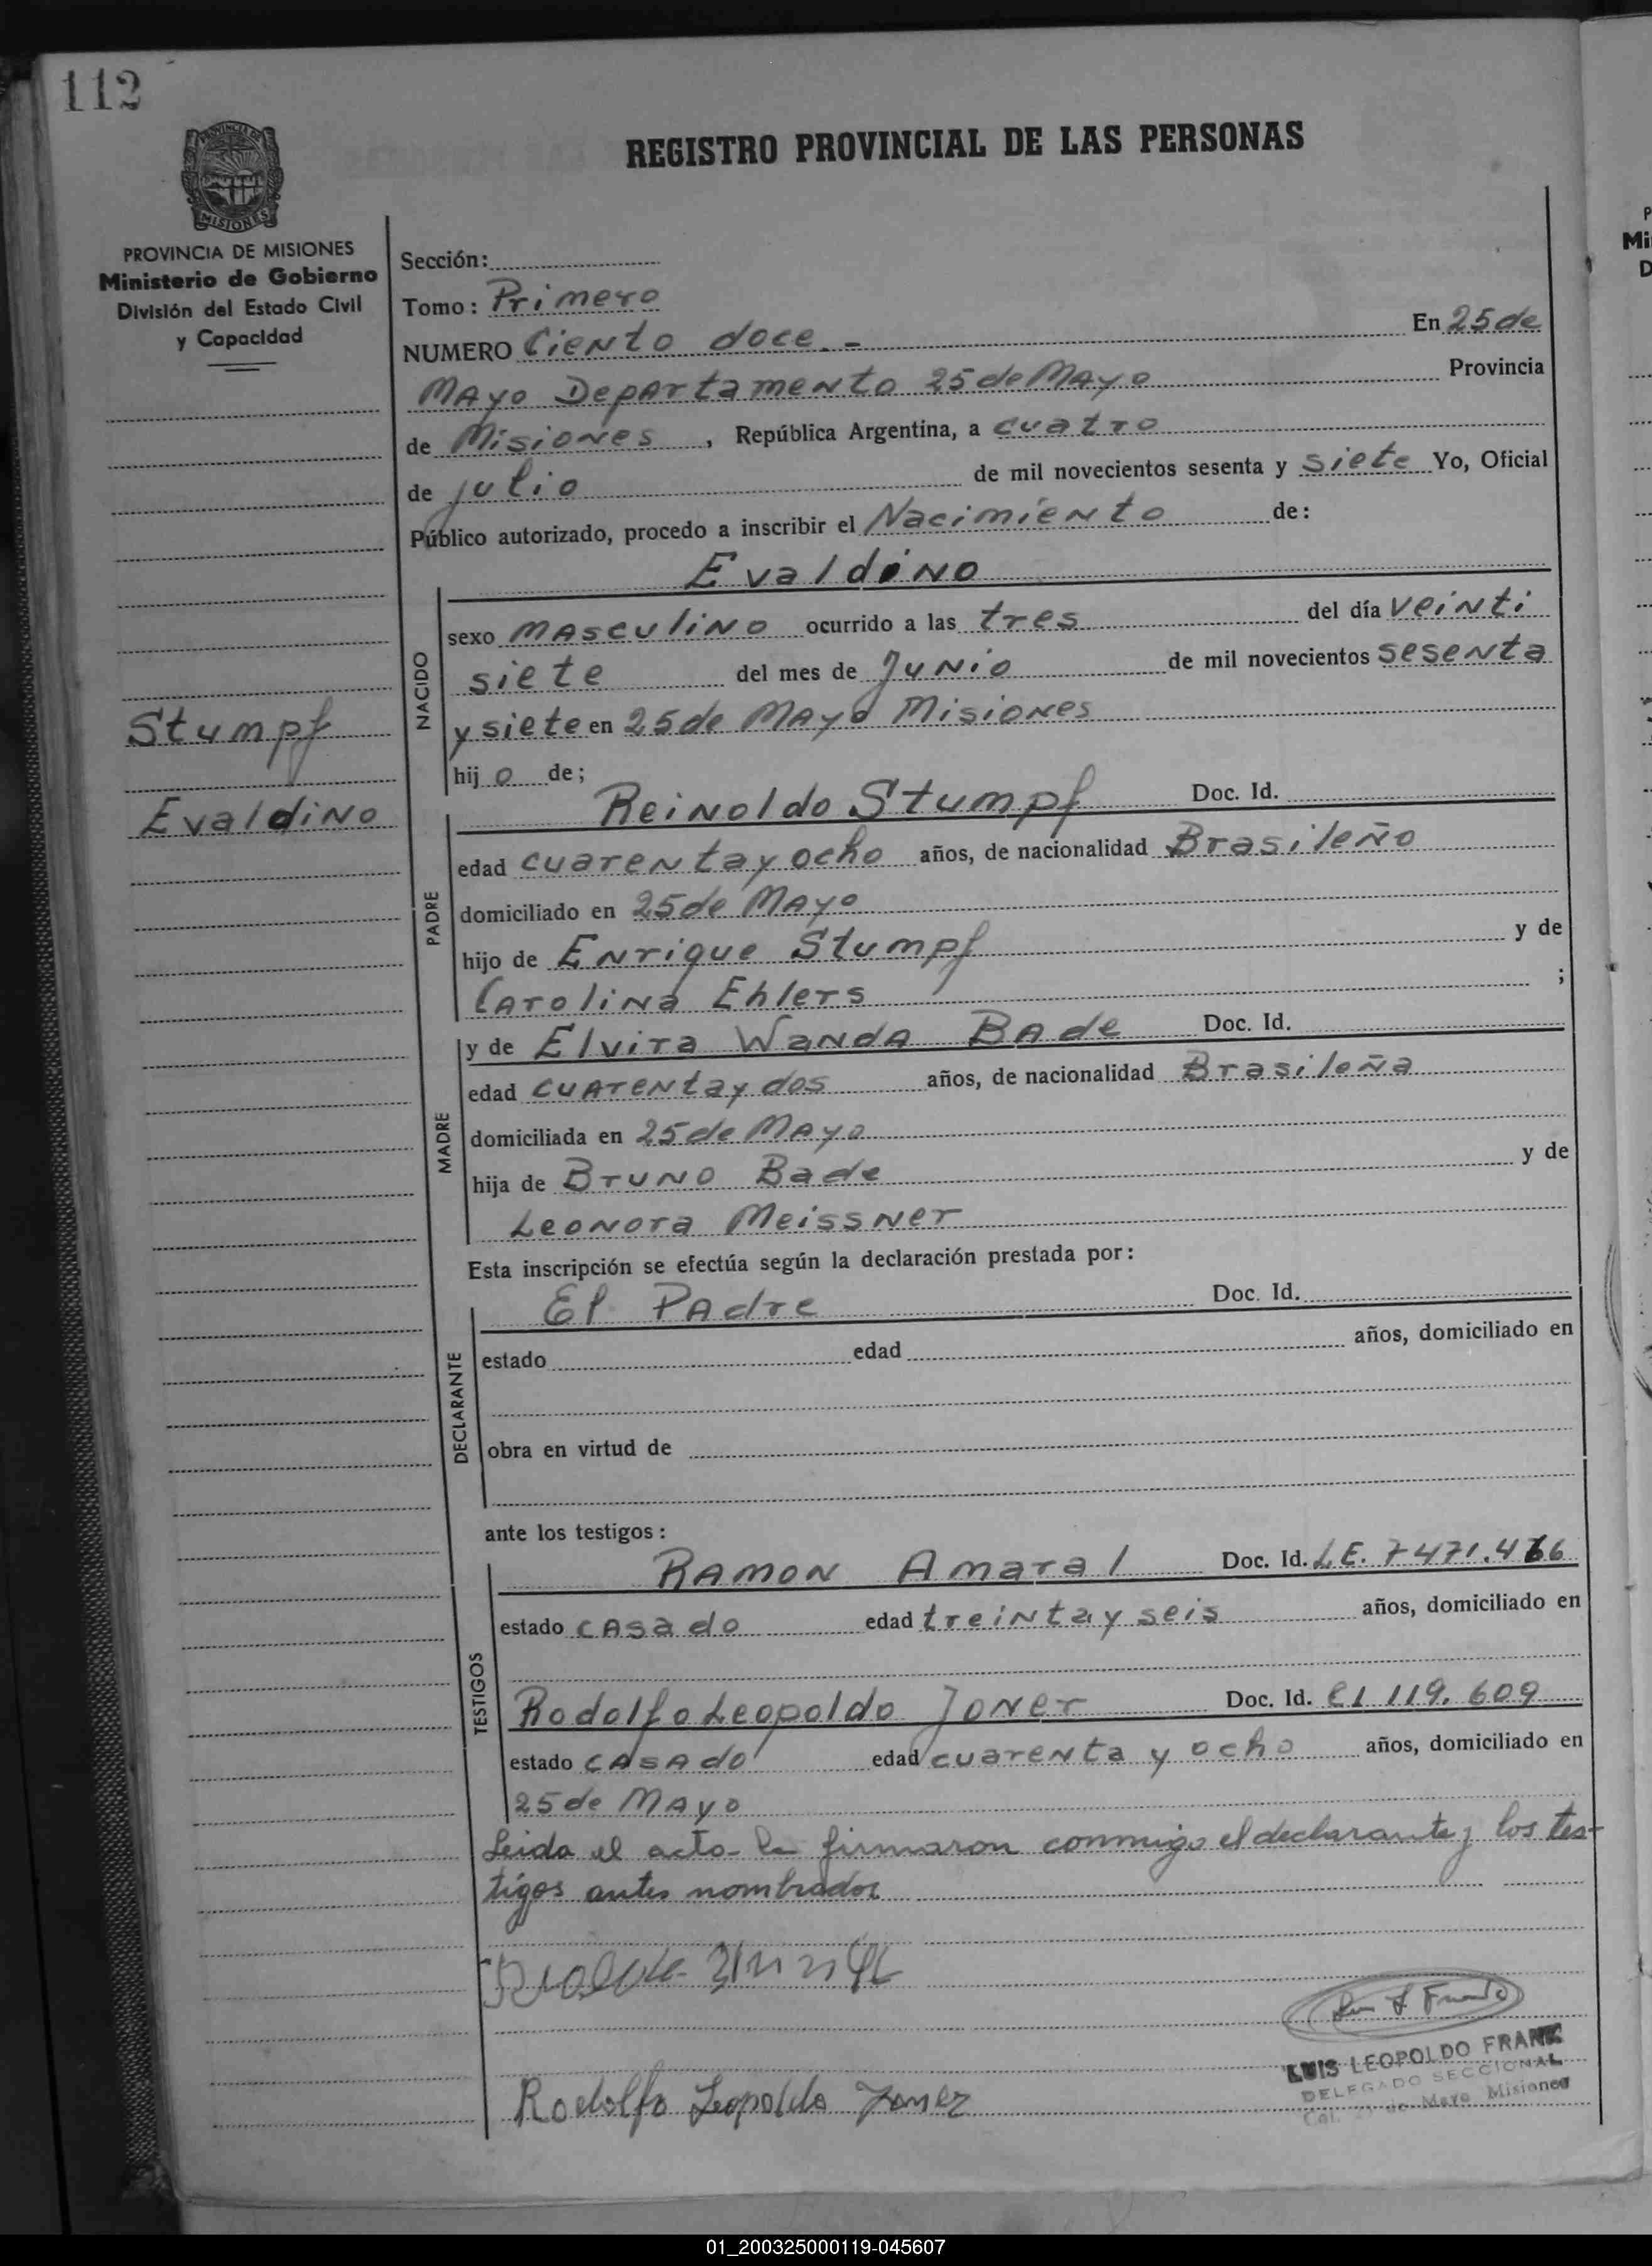 112
REGISTRO PROVINCIAL DE LAS PERSONAS
PROVINCIA DE MISIONES
PROVINCIA DE MISIONES
Ministerio de Gobierno
División del Estado Civil
y Capacidad
Stumpf
Evaldino
Sección:
Tomo: Primero
NUMERO Ciento doce.- En 25 de
Mayo Departamento 25 de Mayo Provincia
de Misiones, República Argentina, a cuatro
de julio de mil novecientos sesenta y siete Yo, Oficial
Público autorizado, procedo a inscribir el Nacimiento de:
Evaldino
NACIDO
sexo masculino ocurrido a las tres del día veinti
siete del mes de Junio de mil novecientos sesenta
y siete en 25 de Mayo Misiones
hijo de;
PADRE
Reinoldo Stumpf Doc. Id.
edad cuarenta y ocho años, de nacionalidad Brasileño
domiciliado en 25 de Mayo
hijo de Enrique Stumpf y de
Carolina Ehlers ;
MADRE
y de Elvira Wanda Bade Doc. Id.
edad cuarenta y dos años, de nacionalidad Brasileña
domiciliada en 25 de Mayo
hija de Bruno Bade y de
Leonora Meissner
Esta inscripción se efectúa según la declaración prestada por:
DECLARANTE
El Padre Doc. Id.
estado edad años, domiciliado en
obra en virtud de
ante los testigos:
TESTIGOS
Ramon Amaral Doc. Id. L.E. 7471.
estado casado edad treinta y seis años, domiciliado en
Rodolfo Leopoldo Joner Doc. Id. 119.609
estado casado edad cuarenta y ocho años, domiciliado en
25 de Mayo
Leida el acta la firmaron conmigo el declarante y los tes-
tigos antes nombrados
LUIS LEOPOLDO FRANK
DELEGADO SECCIONAL
Col. 25 de Mayo Misiones
Rodolfo Leopoldo Joner
01_200325000119-045607